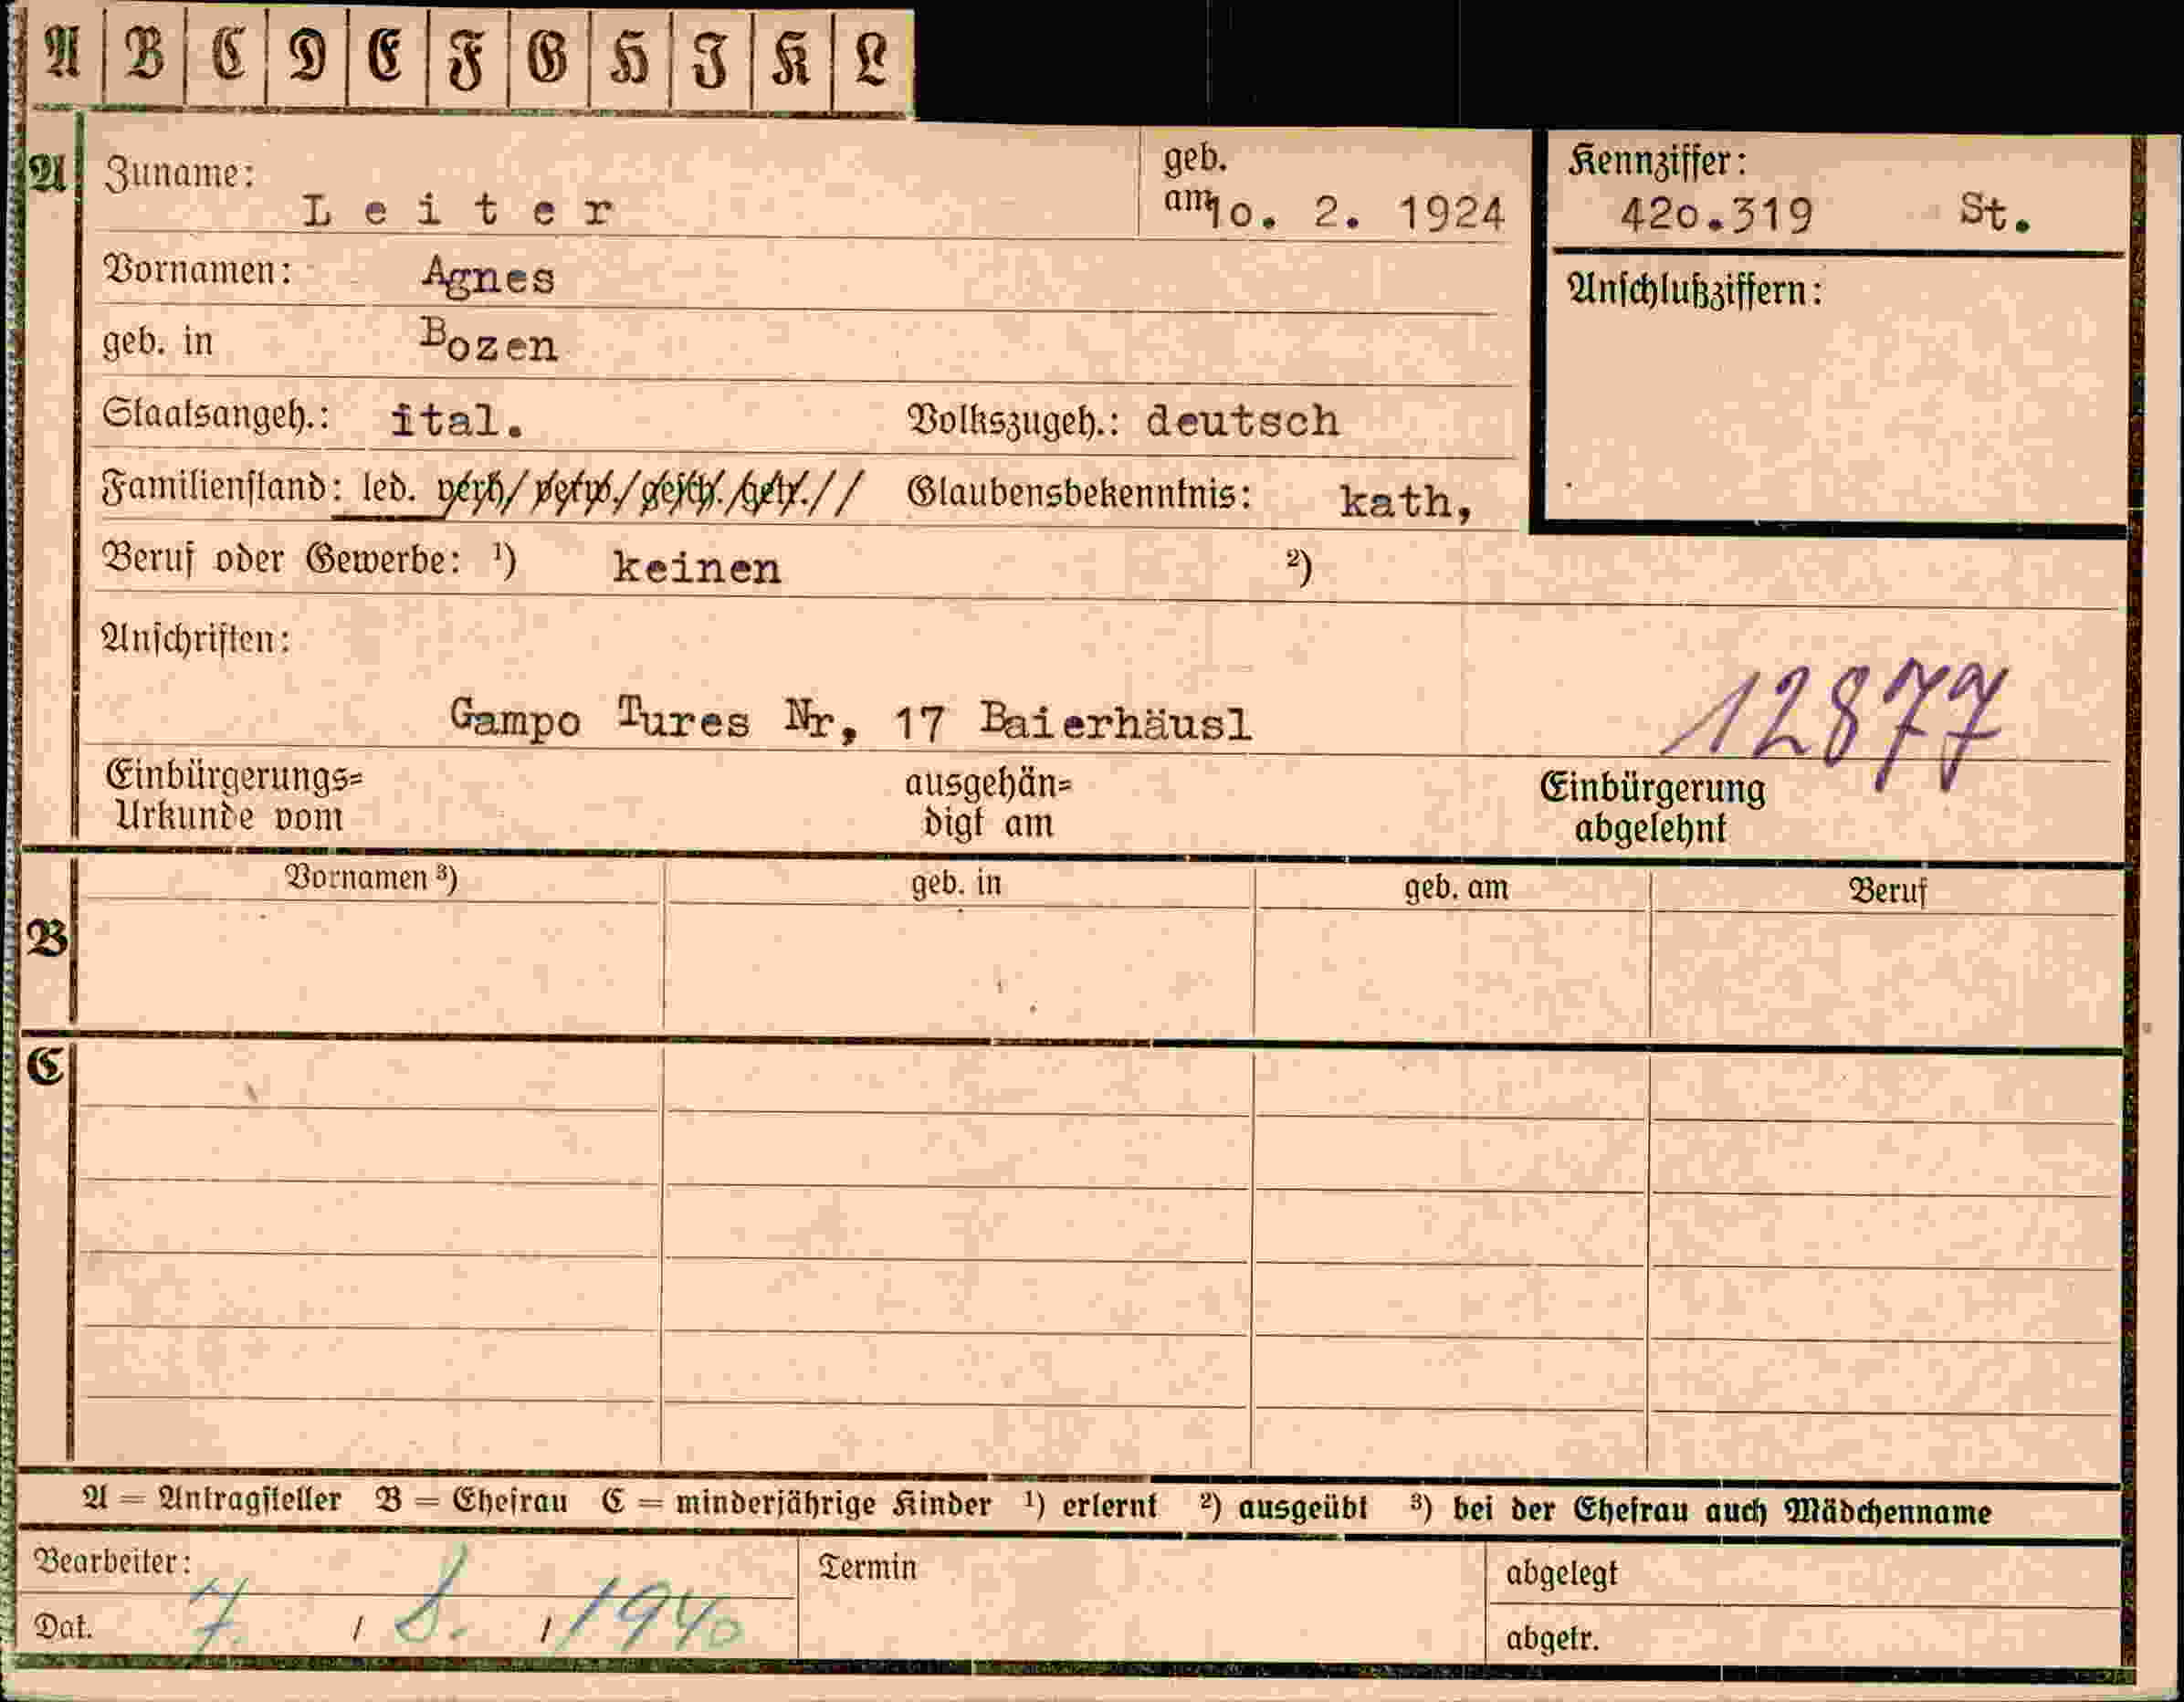 A B C D E F G H I K L
A Zuname: Leiter geb. am 10. 2. 1924 Kennziffer: 420.319 St.
Vornamen: Agnes Anschlußziffern:
geb. in Bozen
Staatsangeh.: ital. Volkszugeh.: deutsch
Familienstand: led. verh/ verw./ gesch./getr.// Glaubensbekenntnis: kath,
Beruf oder Gewerbe: ¹) keinen ²)
Anschriften:
Gampo Tures Nr, 17 Baierhäusl 12877
Einbürgerungs= ausgehän= Einbürgerung
Urkunde vom digt am abgelehnt
Vornamen ³) geb. in geb. am Beruf
B
C
A = Antragsteller B = Ehefrau C = minderjährige Kinder ¹) erlernt ²) ausgeübt ³) bei der Ehefrau auch Mädchenname
Bearbeiter: Termin abgelegt
Dat. 7. / 8. / 1940 abgetr.